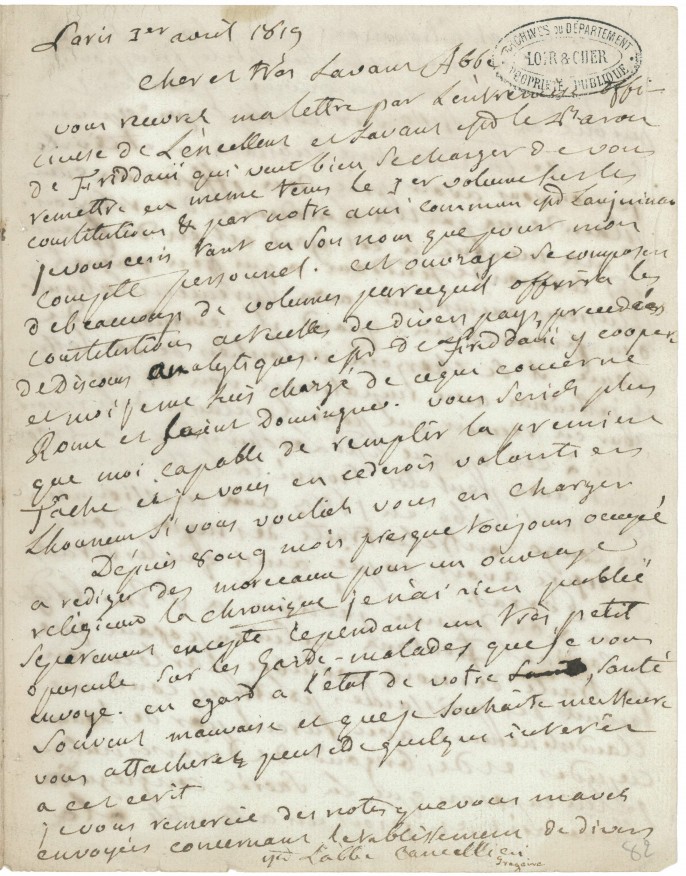 Paris 1er avril 1819
ARCHIVES DU DÉPARTEMENT
LOIR & CHER
PROPRIÉTÉ PUBLIQUE
Cher et très Savant Abbé
vous recevrez ma lettre par L'entremise offi-
cieuse de L'excellent et Savant le Baron
de Friddani qui veut bien Se charger de vous
remettre en meme tems le 1er volume Sur les
constitutions & par notre ami commun Lanjuinais
je vous ecris tant en Son nom que pour mon
compte personnel. cet ouvrage Se composera
de beaucoup de volumes parcequil offrira les
constitutions actuelles de divers pays precedées
de Discours analytiques. de Friddani y coopere
et moi je me Suis chargé de ce qui concerne
Rome et Saint Domingue. vous Seriez plus
que moi capable de remplir la premiere
Tache et je vous en cederois volontiers
Lhonneur Si vous vouliez vous en charger
Depuis 8 ou 9 mois presque toujours occupé
a rediger des morceaux pour un ouvrage
religieux la chronique je n'ai rien publié
Separement excepté Cependant un très petit
opuscule Sur les Garde-malades que je vous
envoye. en egard a l'état de votre Santé
Souvent mauvaise et que je Souhaite meilleure
vous attacherez peut etre quelque interêt
a cet ecrit
je vous remercie des notes que vous m'avez
envoyées concernant l'etablissement de divers
L'abbé Cancellieri
Gregoire
82